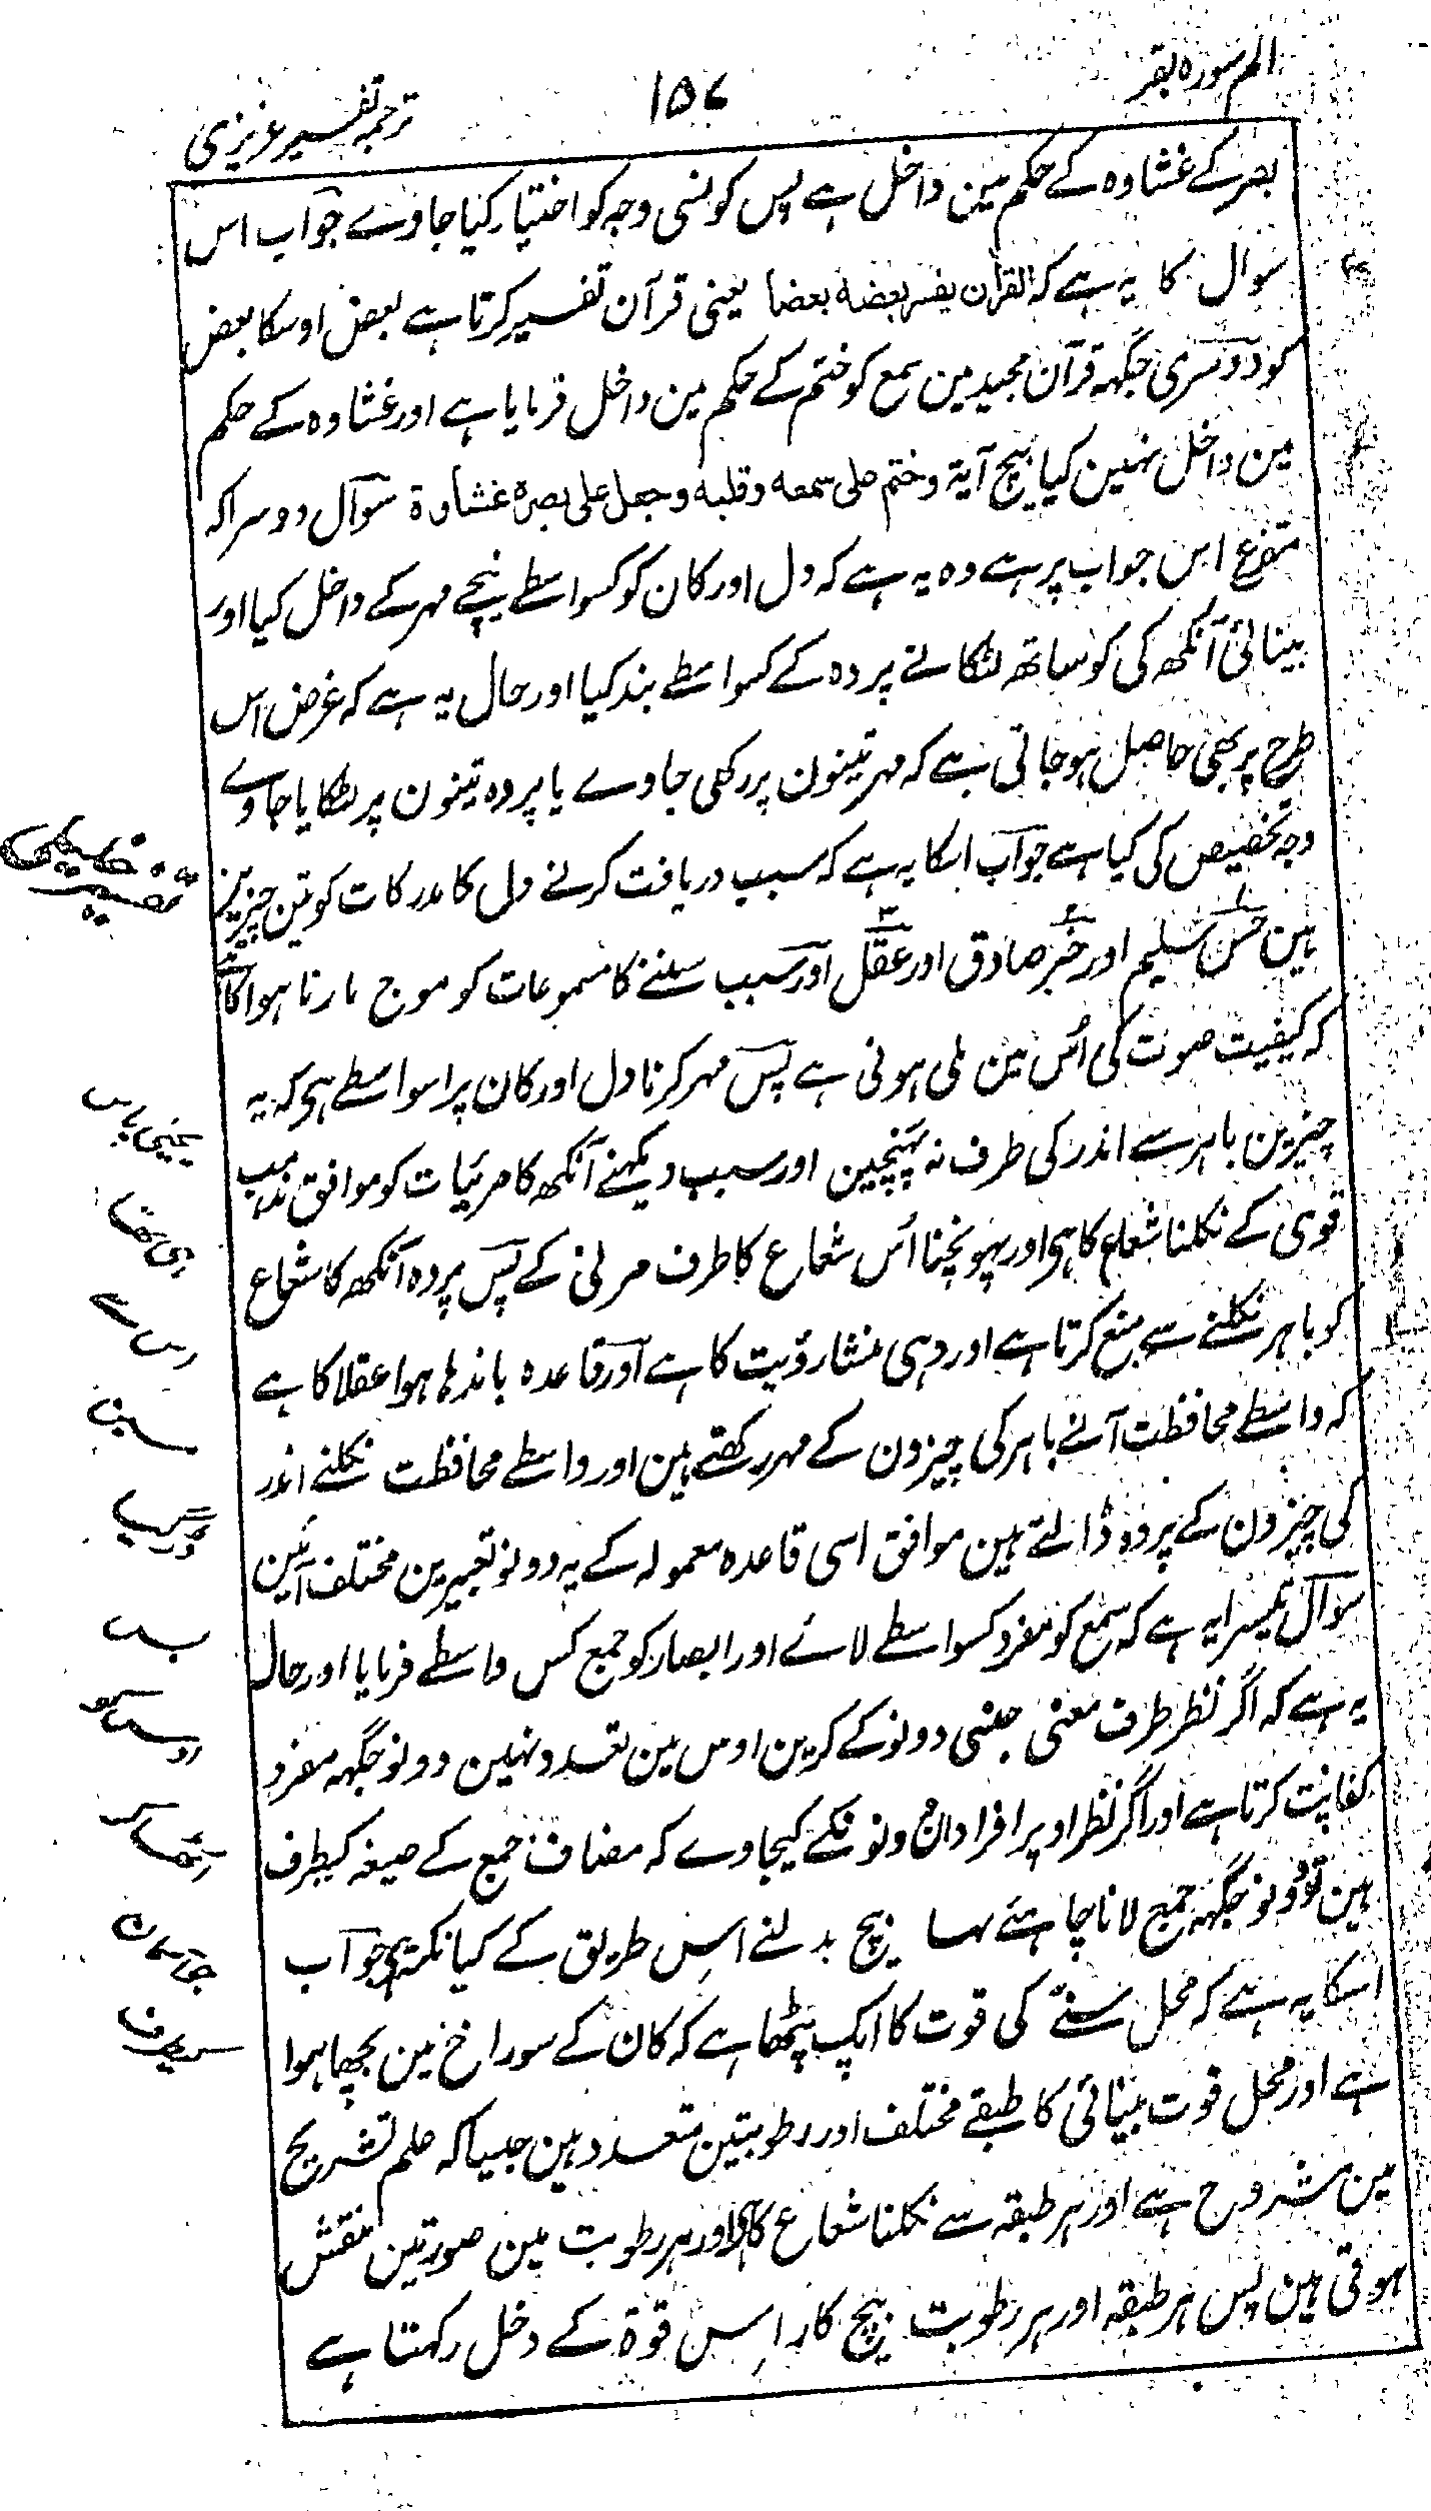 الم سوره بقر
۱۵۷
ترجمہ تفسیر عزیزی
بصر کے غشاوہ کے حکم مین داخل ہے پس کونسی وجہ کو اختیار کیا جاوے جواب اس
سوال کا یہ ہے کہ القرآن یفسر بعضہ بعضا یعنی قرآن تفسیر کرتا ہے بعض اوسکا بعض
کو دوسری جگہہ قرآن مجید مین سمع کو ختم کے حکم مین داخل فرمایا ہے اور غشاوہ کے حکم
مین داخل نہین کیا بیچ آیۃ وختم علی سمعه وقلبه وجعل علی بصره غشاوة سوال دوسرا کہ
متفرع اس جواب پر ہے وہ یہ ہے کہ دل اور کان کو کسواسطے نیچے مہر کے داخل کیا اور
بینائی آنکھ کی کو ساتھ لٹکانے پردہ کے کسواسطے بند کیا اور حال یہ ہے کہ غرض اس
طرح پر بھی حاصل ہوجاتی ہے کہ مہر تینون پر رکھی جاوے یا پردہ تینون پر لٹکایا جاوے
وجہ تخصیص کی کیا ہے جواب اسکا یہ ہے کہ سبب دریافت کرنے دل کا مدرکات کو تین چیزین
ہین حس سلیم اور خبر صادق اور عقل اور سبب سننے کا مسموعات کو موج مارنا ہوا کا ہے
کہ کیفیت صوت کی اُس مین ملی ہوئی ہے پس مہر کرنا دل اور کان پر اسواسطے ہی کہ یہ
چیزین باہر سے اندر کی طرف نہ پہنچین اور سبب دیکہنے آنکھ کا مرئیات کو موافق مذہب
قوی کے نکلنا شعاع کا ہی اور پہونچنا اُس شعاع کا طرف مرئی کے پس پردہ آنکھ کا شعاع
کو باہر نکلنے سے منع کرتا ہے اور وہی منشا رؤیت کا ہے اور قاعدہ باندہا ہوا عقلا کا ہے
کہ واسطے محافظت آنے باہر کی چیزون کے مہر رکھتے ہین اور واسطے محافظت نکلنے اندر
کی چیزون کے پردہ ڈالتے ہین موافق اسی قاعدہ معمولہ کے یہ دونو تعبیرین مختلف آئین
سوال تیسرا یہ ہے کہ سمع کو مفرد کسواسطے لائے اور ابصار کو جمع کس واسطے فرمایا اور حال
یہ ہے کہ اگر نظر طرف معنی جنسی دونو کے کرین اوس مین تعدد نہین دونو جگہہ مفرد
کفایت کرتا ہے اور اگر نظر اوپر افراد ان دونو نکے کیجاوے کہ مضاف جمع کے صیغہ کیطرف
ہین تو دونو جگہہ جمع لانا چاہئے تہا بیچ بدلنے اس طریق کے کیا نکتہ ہی جواب
اسکا یہ ہے کہ محل سننے کی قوت کا ایک پٹھا ہے کہ کان کے سوراخ مین بچھا ہوا
ہے اور محل قوت بینائی کا طبقے مختلف اور رطوبتین متعدد ہین جیسا کہ علم تشریح
مین مشروح ہے اور ہر طبقہ سے نکلنا شعاع کا ہی اور ہر رطوبت مین صورتین منقش
ہوتی ہین پس ہر طبقہ اور ہر رطوبت بیچ کار اس قوة کے دخل رکہتا ہے